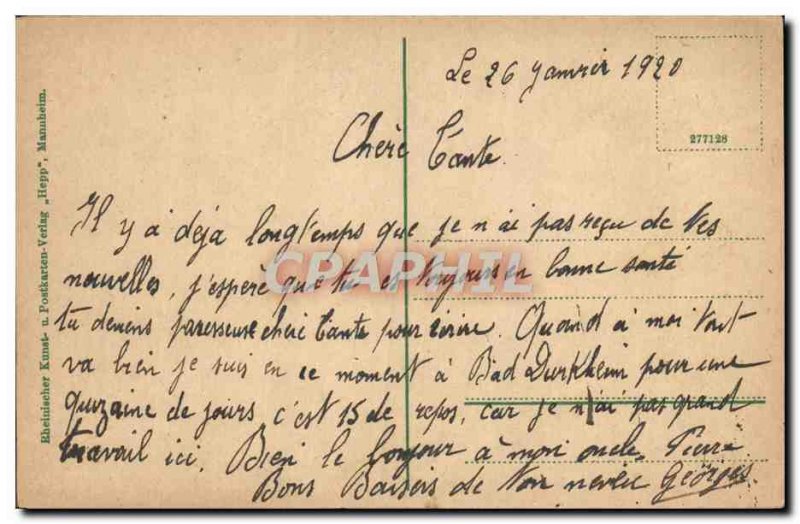 Le 26 Janvier 1920
277128
Chère Tante
Il y a déja longtemps que je n'ai pas reçu de tes
nouvelles, j'espère que tu es toujours en bonne santé
tu deviens paresseuse chère Tante pour écrire. Quand à moi tout
va bien je suis en ce moment à Bad Durkheim pour une
quizaine de jours c'est 15 de repos, car je n'ai pas grand
travail ici. Bien le bonjour à mon oncle Pierre.
Bons Baisers de ton neveu Georges.
Rheinischer Kunst- u. Postkarten-Verlag „Hepp", Mannheim.
CPAPHIL.com